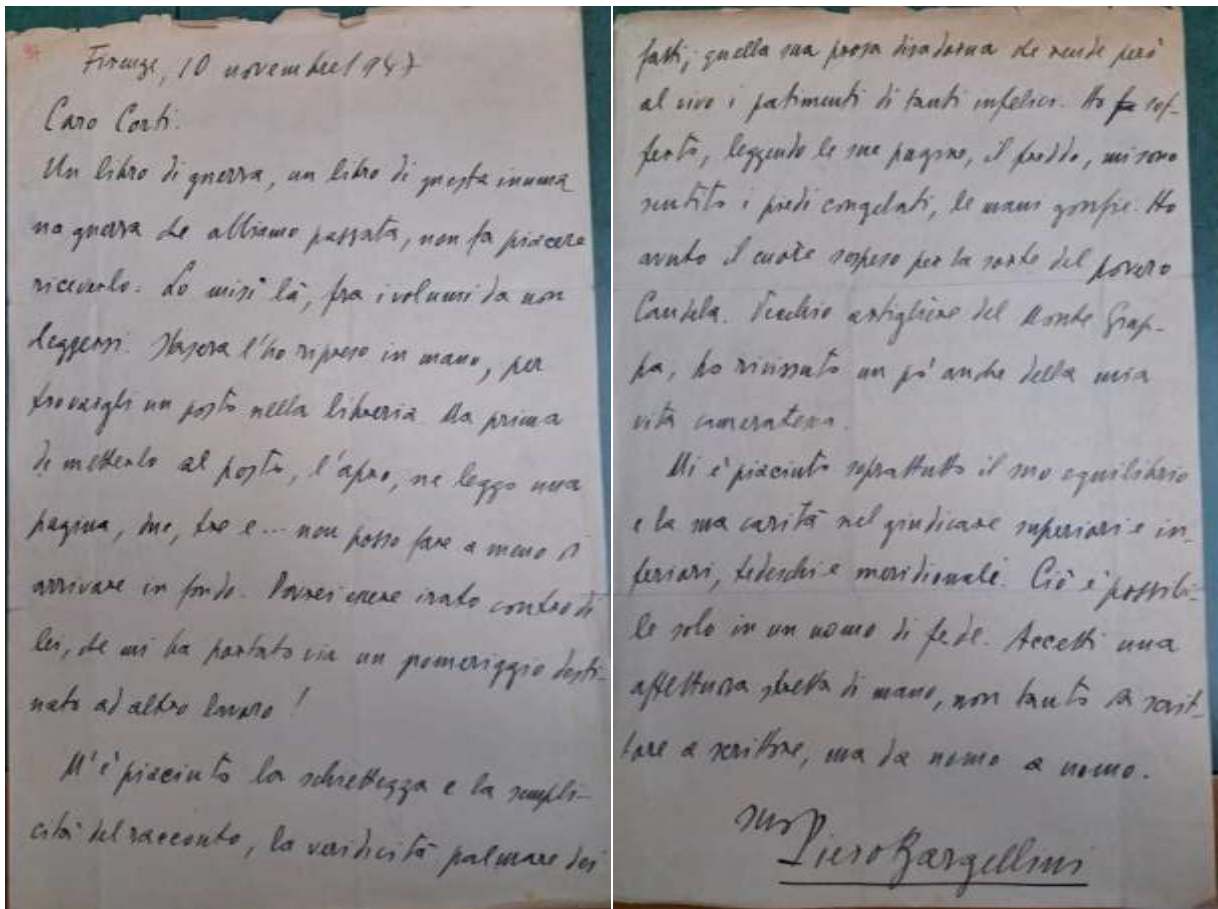 97
Firenze, 10 novembre 1947
Caro Corti.
Un libro di guerra, un libro di questa inuma
na guerra che abbiamo passata, non fa piacere
riceverlo. Lo misi là, fra i volumi da non
leggersi. Stasera l'ho ripreso in mano, per
trovargli un posto nella libreria. Ma prima
di metterlo al posto, l'apro, ne leggo una
pagina, due, tre e... non posso fare a meno di
arrivare in fondo. Dovrei essere irato contro di
lei, che mi ha portato via un pomeriggio desti-
nato ad altro lavoro!
M'è piaciuto la schiettezza e la sempli-
cità del racconto, la veridicità palmare dei
fatti; quella sua prosa disadorna che rende però
al vivo i patimenti di tanti infelici. Ho sof-
ferto, leggendo le sue pagine, il freddo, mi sono
sentito i piedi congelati, le mani gonfie. Ho
avuto il cuore sospeso per la sorte del povero
Candela. Vecchio artigliere del Monte Grap-
pa, ho rivissuto un pò anche della mia
vita cameratesca.
Mi è piaciuto soprattutto il suo equilibrio
e la sua carità nel giudicare superiori e in-
feriori, tedeschi e meridionali. Ciò è possibi-
le solo in un uomo di fede. Accetti una
affettuosa stretta di mano, non tanto da scrit-
tore a scrittore, ma da uomo a uomo.
suo
Piero Bargellini